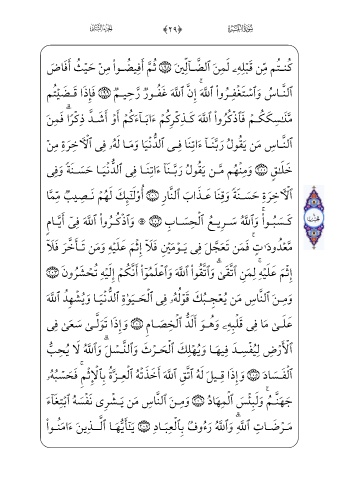 سُورَةُ البَقَرَةِ ﴿٢٩﴾ الجُزْءُ الثَّانِي
كُنتُم مِّن قَبْلِهِۦ لَمِنَ ٱلضَّآلِّينَ ۝ ثُمَّ أَفِيضُوا۟ مِنْ حَيْثُ أَفَاضَ
ٱلنَّاسُ وَٱسْتَغْفِرُوا۟ ٱللَّهَ ۚ إِنَّ ٱللَّهَ غَفُورٌ رَّحِيمٌ ۝ فَإِذَا قَضَيْتُم
مَّنَٰسِكَكُمْ فَٱذْكُرُوا۟ ٱللَّهَ كَذِكْرِكُمْ ءَابَآءَكُمْ أَوْ أَشَدَّ ذِكْرًا ۗ فَمِنَ
ٱلنَّاسِ مَن يَقُولُ رَبَّنَآ ءَاتِنَا فِى ٱلدُّنْيَا وَمَا لَهُۥ فِى ٱلْـَٔاخِرَةِ مِنْ
خَلَٰقٍ ۝ وَمِنْهُم مَّن يَقُولُ رَبَّنَآ ءَاتِنَا فِى ٱلدُّنْيَا حَسَنَةً وَفِى
ٱلْـَٔاخِرَةِ حَسَنَةً وَقِنَا عَذَابَ ٱلنَّارِ ۝ أُو۟لَٰٓئِكَ لَهُمْ نَصِيبٌ مِّمَّا
كَسَبُوا۟ ۚ وَٱللَّهُ سَرِيعُ ٱلْحِسَابِ ۝ ۞ وَٱذْكُرُوا۟ ٱللَّهَ فِىٓ أَيَّامٍ
مَّعْدُودَٰتٍ ۚ فَمَن تَعَجَّلَ فِى يَوْمَيْنِ فَلَآ إِثْمَ عَلَيْهِ وَمَن تَأَخَّرَ فَلَآ
إِثْمَ عَلَيْهِ ۚ لِمَنِ ٱتَّقَىٰ ۗ وَٱتَّقُوا۟ ٱللَّهَ وَٱعْلَمُوٓا۟ أَنَّكُمْ إِلَيْهِ تُحْشَرُونَ ۝
وَمِنَ ٱلنَّاسِ مَن يُعْجِبُكَ قَوْلُهُۥ فِى ٱلْحَيَوٰةِ ٱلدُّنْيَا وَيُشْهِدُ ٱللَّهَ
عَلَىٰ مَا فِى قَلْبِهِۦ وَهُوَ أَلَدُّ ٱلْخِصَامِ ۝ وَإِذَا تَوَلَّىٰ سَعَىٰ فِى
ٱلْأَرْضِ لِيُفْسِدَ فِيهَا وَيُهْلِكَ ٱلْحَرْثَ وَٱلنَّسْلَ ۗ وَٱللَّهُ لَا يُحِبُّ
ٱلْفَسَادَ ۝ وَإِذَا قِيلَ لَهُ ٱتَّقِ ٱللَّهَ أَخَذَتْهُ ٱلْعِزَّةُ بِٱلْإِثْمِ ۚ فَحَسْبُهُۥ
جَهَنَّمُ ۚ وَلَبِئْسَ ٱلْمِهَادُ ۝ وَمِنَ ٱلنَّاسِ مَن يَشْرِى نَفْسَهُ ٱبْتِغَآءَ
مَرْضَاتِ ٱللَّهِ ۗ وَٱللَّهُ رَءُوفٌۢ بِٱلْعِبَادِ ۝ يَٰٓأَيُّهَا ٱلَّذِينَ ءَامَنُوا۟